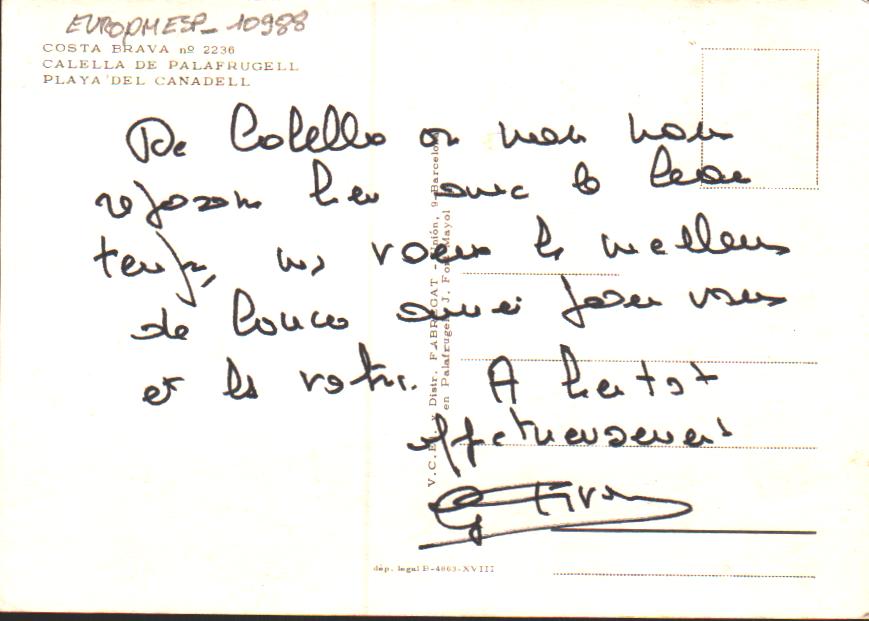 EUROPMESP_10988
COSTA BRAVA nº 2236
CALELLA DE PALAFRUGELL
PLAYA DEL CANADELL
De Calella ou nous nous
reposons bien avec le beau
temps, nos voeux les meilleurs
de aussi pour vous
et les votres. A bientot
affectueusement
V.C.E. y Distr. FABREGAT - Unión, 9-Barcelona
en Palafrugell J. Font Mayol
dép. legal B-4863-XVIII